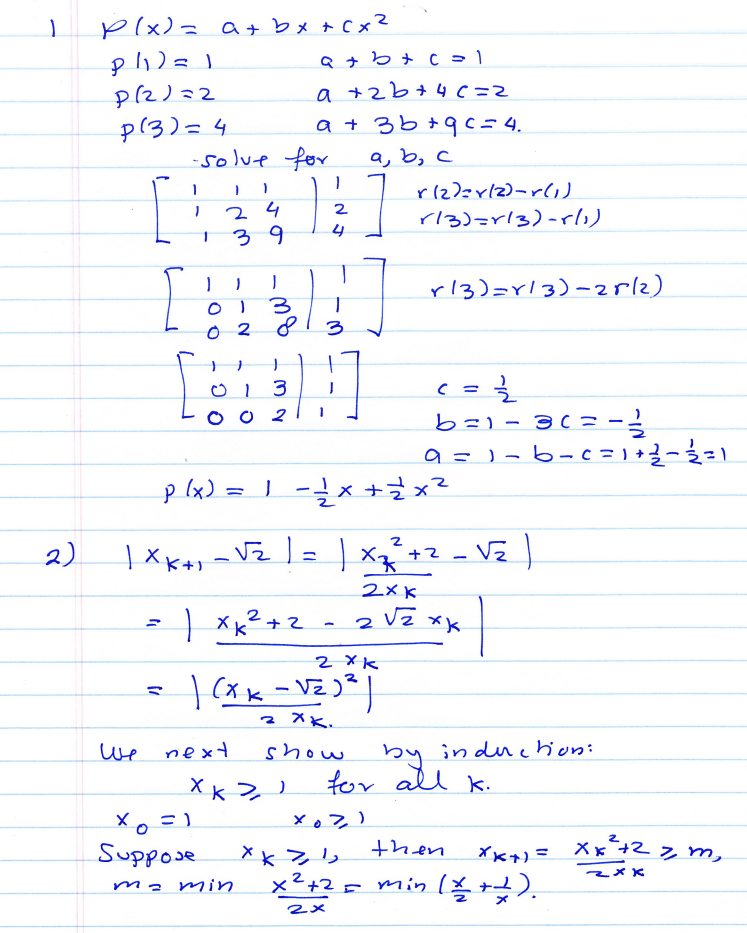 1 p(x) = a + bx + cx²
p(1) = 1 a + b + c = 1
p(2) = 2 a + 2b + 4c = 2
p(3) = 4 a + 3b + 9c = 4.
solve for a, b, c
[ 1 1 1 | 1 ] r(2)=r(2)-r(1)
[ 1 2 4 | 2 ] r(3)=r(3)-r(1)
[ 1 3 9 | 4 ]
[ 1 1 1 | 1 ] r(3)=r(3)-2r(2)
[ 0 1 3 | 1 ]
[ 0 2 8 | 3 ]
[ 1 1 1 | 1 ]
[ 0 1 3 | 1 ] c = 1/2
[ 0 0 2 | 1 ] b = 1 - 3c = -1/2
a = 1 - b - c = 1 + 1/2 - 1/2 = 1
p(x) = 1 - 1/2 x + 1/2 x²
2) | x_{k+1} - √2 | = | (x_k² + 2)/(2x_k) - √2 |
= | (x_k² + 2 - 2√2 x_k)/(2x_k) |
= | (x_k - √2)²/(2x_k) |.
We next show by induction:
x_k ≥ 1 for all k.
x_0 = 1 x_0 ≥ 1
Suppose x_k ≥ 1, then x_{k+1} = (x_k² + 2)/(2x_k) ≥ m,
m = min (x² + 2)/(2x) = min (x/2 + 1/x).